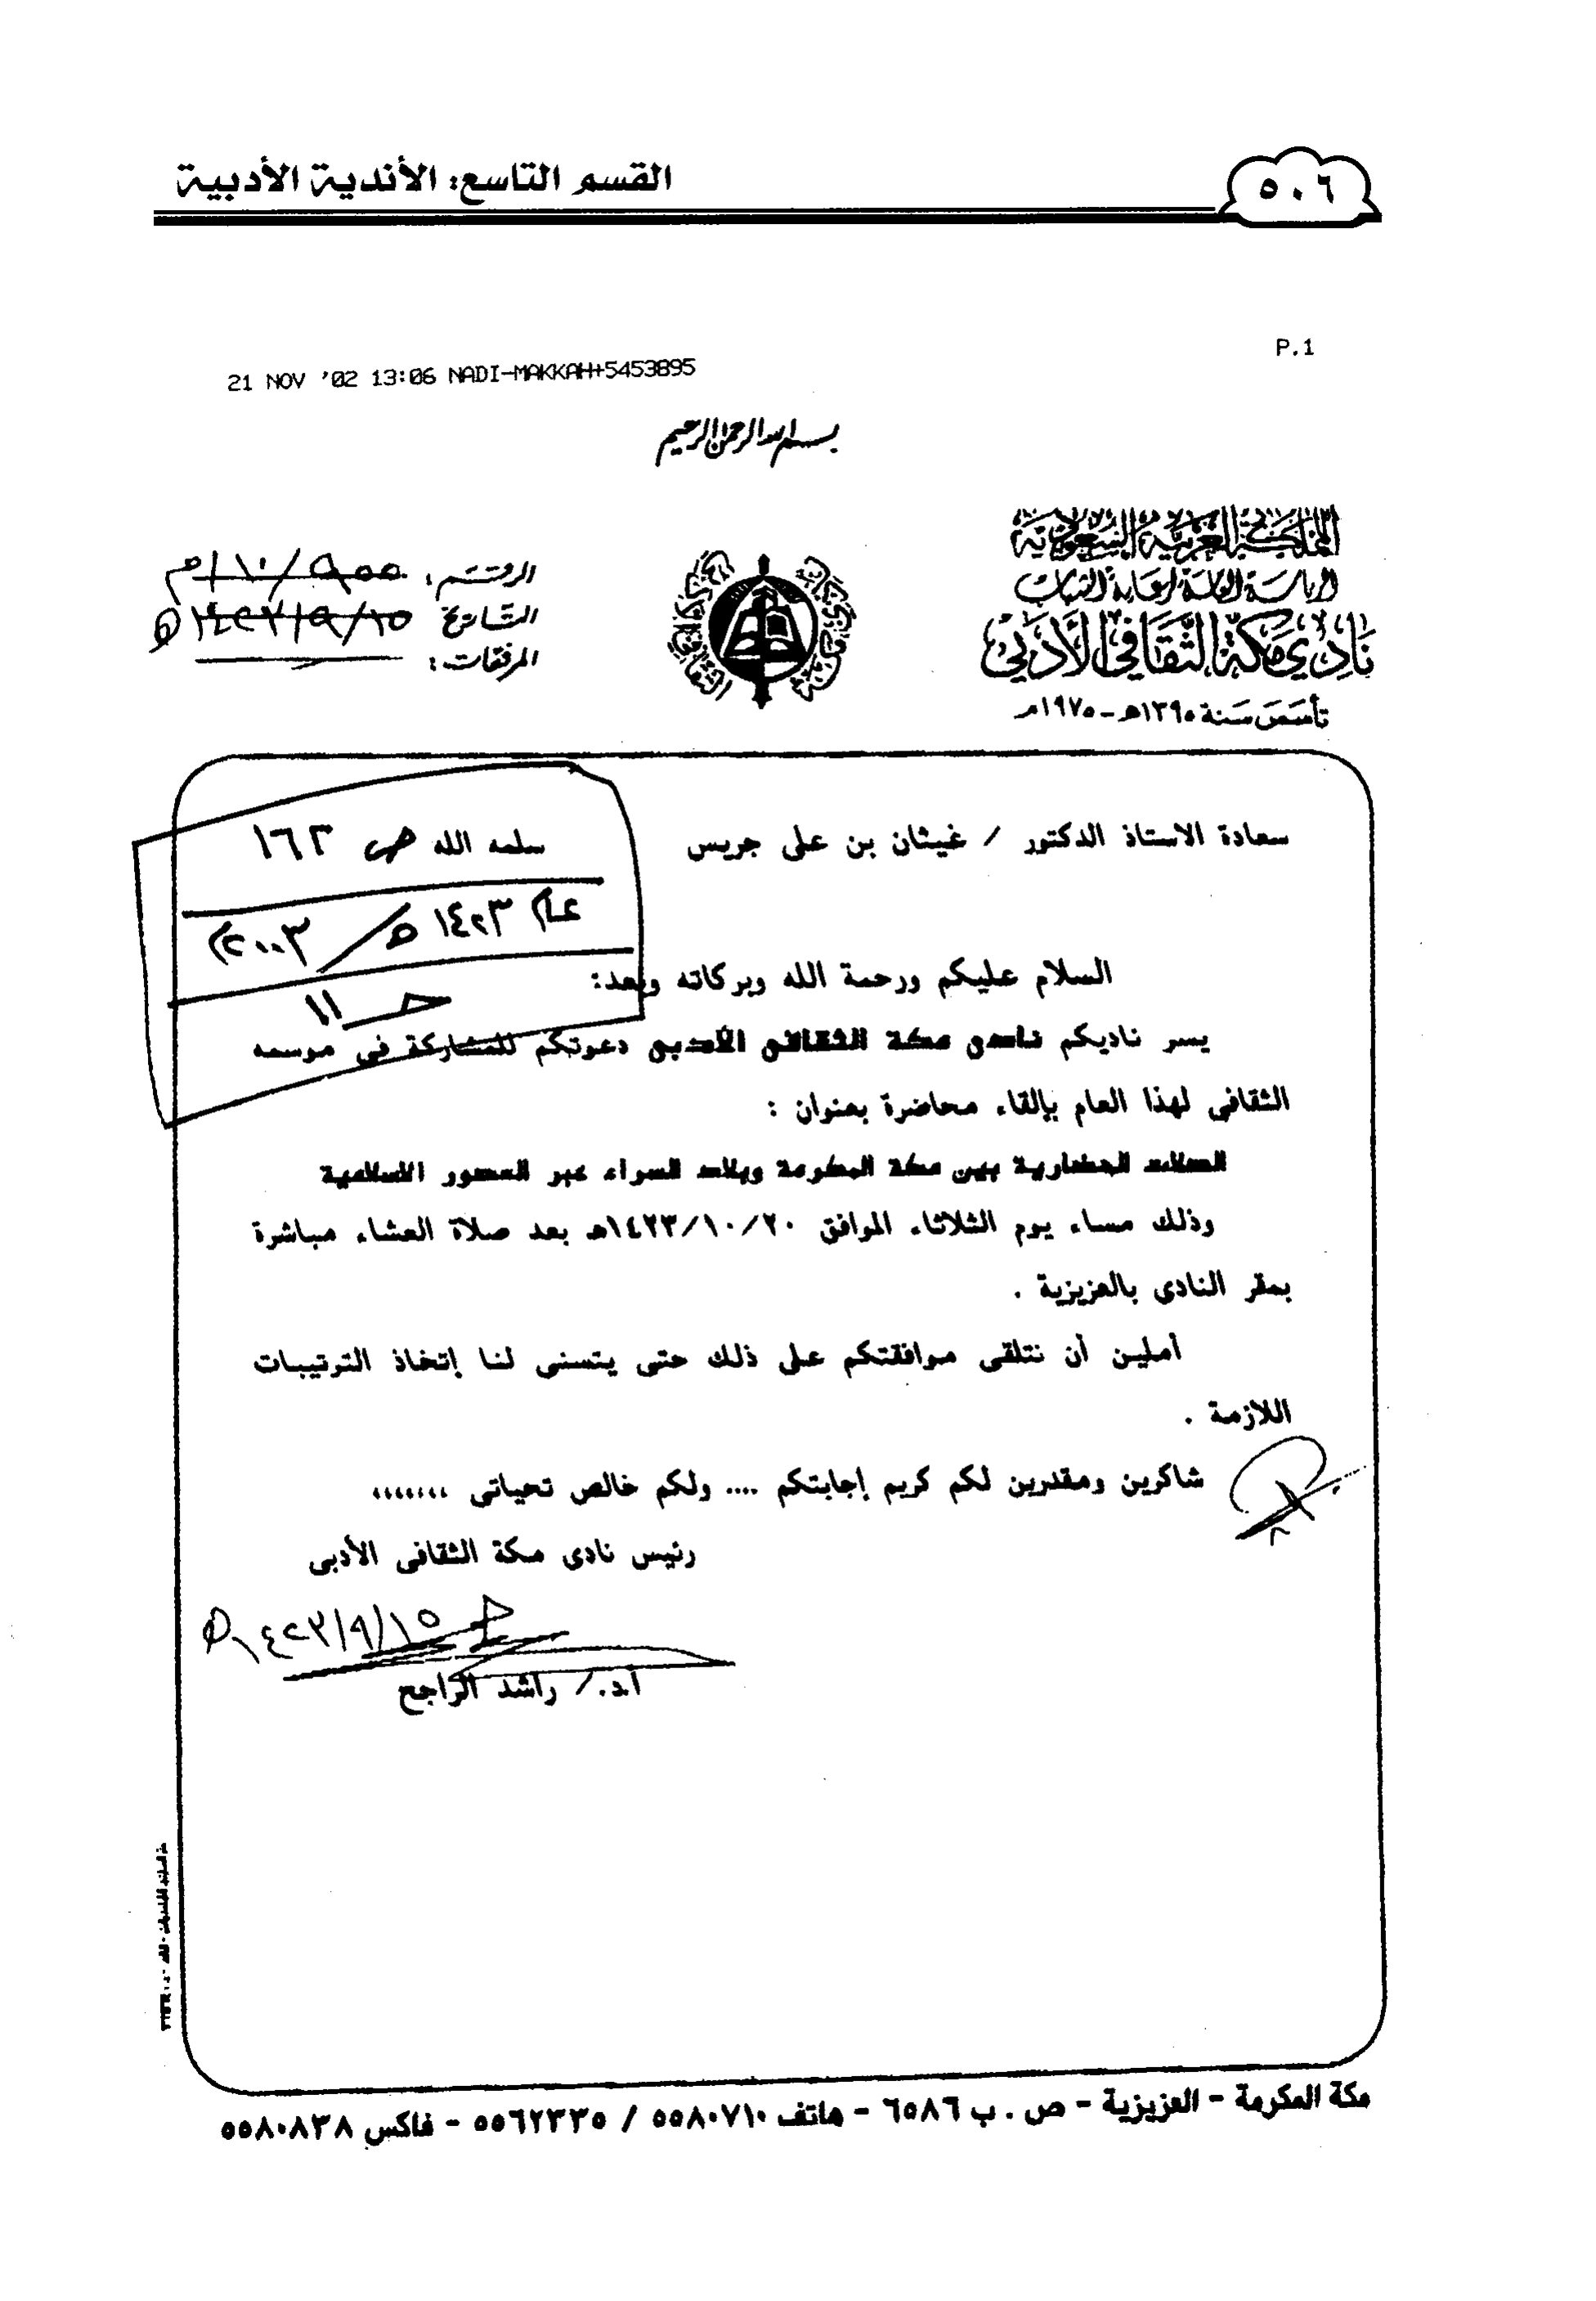 ٥٠٦
القسم التاسع: الأندية الأدبية
P.1
21 NOV '02 13:06 NADI-MAKKAH+5453895
بسم الله الرحمن الرحيم
المملكة العربية السعودية
الرئاسة العامة لرعاية الشباب
نادي مكة الثقافي الأدبي
تأسس سنة ١٣٩٥هـ - ١٩٧٥م
الرقم: ٩٥٥/١٠/م
التاريخ ١٤٢٣/٩/١٥هـ
المرفقات:
سعادة الاستاذ الدكتور / غيثان بن على جريس سلمه الله ص ١٦٣
عام ١٤٢٣ هـ / ٢٠٠٣م
جـ ١١
السلام عليكم ورحمة الله وبركاته وبعد:
يسر ناديكم نادى مكة الثقافى الأدبى دعوتكم للمشاركة فى موسمه
الثقافى لهذا العام بإلقاء محاضرة بعنوان :
الصلات الحضارية بين مكة المكرمة وبلاد السراة عبر العصور الاسلامية
وذلك مساء يوم الثلاثاء الموافق ١٤٢٣/١٠/٢٠هـ بعد صلاة العشاء مباشرة
بمقر النادى بالعزيزية .
أملين أن نتلقى موافقتكم على ذلك حتى يتسنى لنا إتخاذ الترتيبات
اللازمة .
شاكرين ومقدرين لكم كريم إجابتكم .... ولكم خالص تحياتى ،،،،،،،
رئيس نادى مكة الثقافى الأدبى
١٤٢٣/٩/١٥هـ
أ.د./ راشد الراجح
مكة المكرمة - العزيزية - ص . ب ٦٥٨٦ - هاتف ٥٥٨٠٧١٠ / ٥٥٦٢٣٣٥ - فاكس ٥٥٨٠٨٣٨